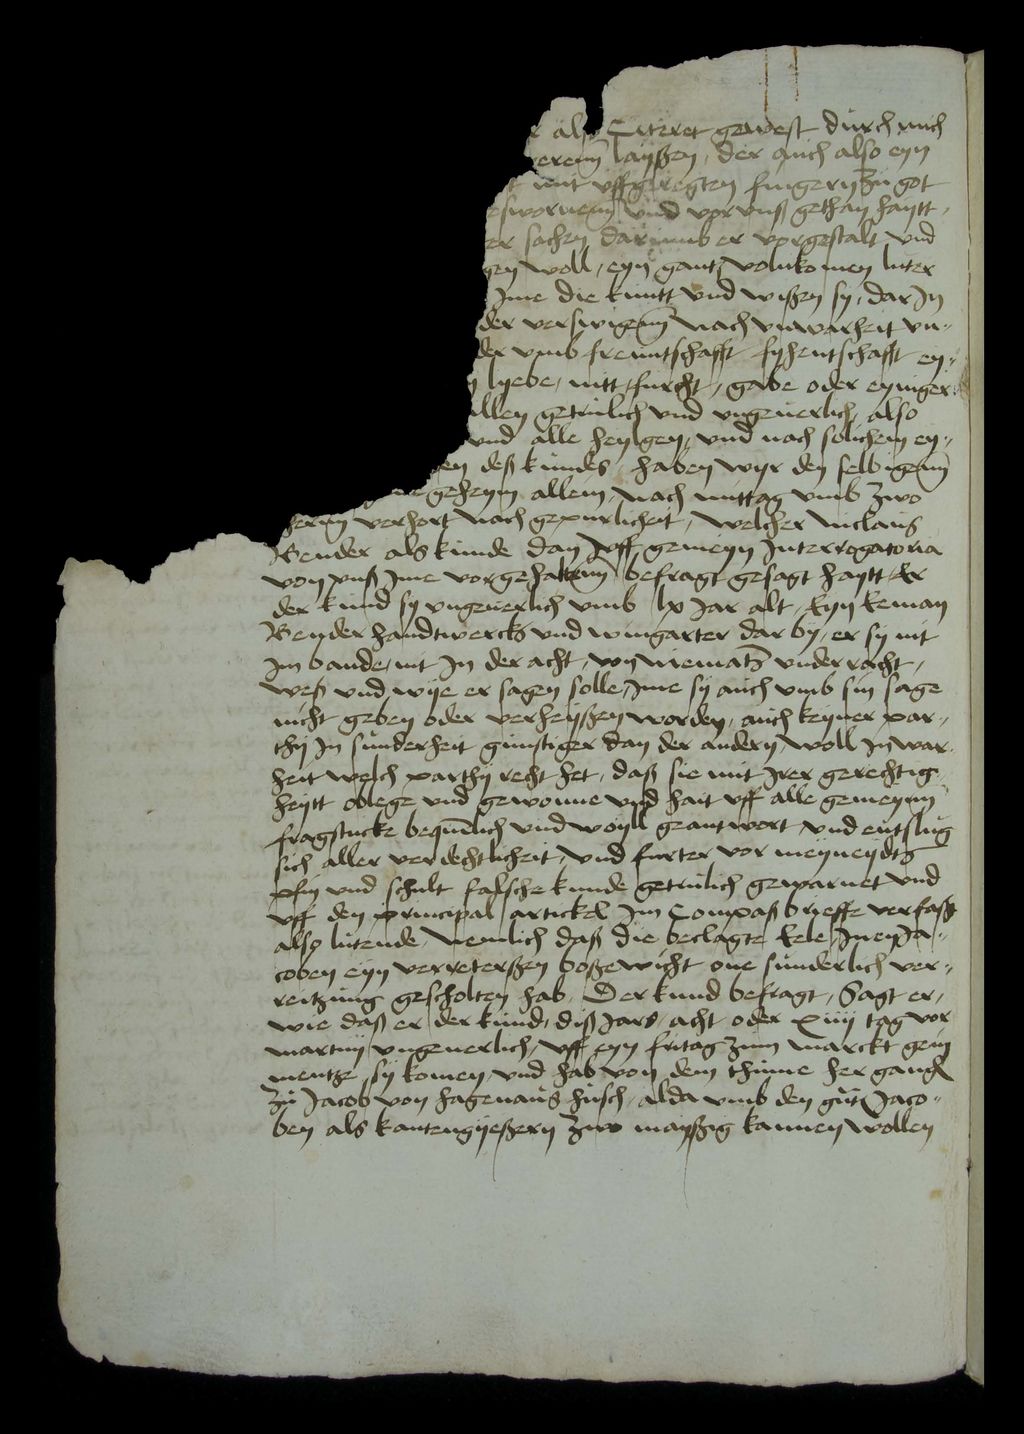 r also Citeret gewest durch mich
weren laissen, der auch also eyn
t mit uffgeregten fingern zu got
eswornen und vor unß gethan haytt,
er sachen darumb er vorgestalt und
gen woll, eyn gantz volnkomen luter
Ime die kuntt und wißen sy, dar In
der verswigen nach unwarheit vn-
der umb fruntschafft fyhentschafft ey-
n lyebe, nitt, furcht, gabe oder eyniger
allen getrulich und ungeuerlich, also
und alle heylgen, und nach solichem ey-
en deß kundes, haben wyr den selbigenn
geheym allein, nach mittag umb zwo
hernn verhort nach gepurlicheit, welcher niclaus
Bender als kunde dan uff gemeyn Interrogatoria
von unß Ime vorgehaltenn befragt gesagt haytt Er
der kund sy ungeuerlich umb lx Jar alt, Eyn Eeman
Bender handtwercks und wingarter dar by, er sy nit
Im bande, nit In der acht, von niemants underracht,
weß und wye er sagen solle, Ime sy auch umb sin sage
nicht geben oder verheyßen worden, auch keyner par-
thy In sunderheit gunstiger dan der andern woll In war-
heit welch parthy recht het, daß sie mit Irer gerechtig-
heytt oblege und gewonne und hait uff alle gemeynn
fragstucke bequemlich und woyll geantwort und entslug
sich aller verdechtlicheit, und furter vor meyneydts
pfin und schult falsche kunde getrulich gewarnet und
uff den principal artickel Im Compaß brieffe verfaßt
also lutende, nemlich daß die beclagte Eele Inen Ja-
coben eyn verretersßen boßewicht one sunderlich ver-
reitzung gescholten hab, Der kund befragt, Sagt er,
wie daß er der kund, diß Jars, acht oder xiiij tag vor
martinj ungeuerlich, uff eyn fritag zum marckt gein
mentze sy komen, und hab von dem thume her gang
zu Jacob von hagenaus husch, alda umb den gut Jaco-
ben als kantengyeßern zwo mayßig kannen wollen